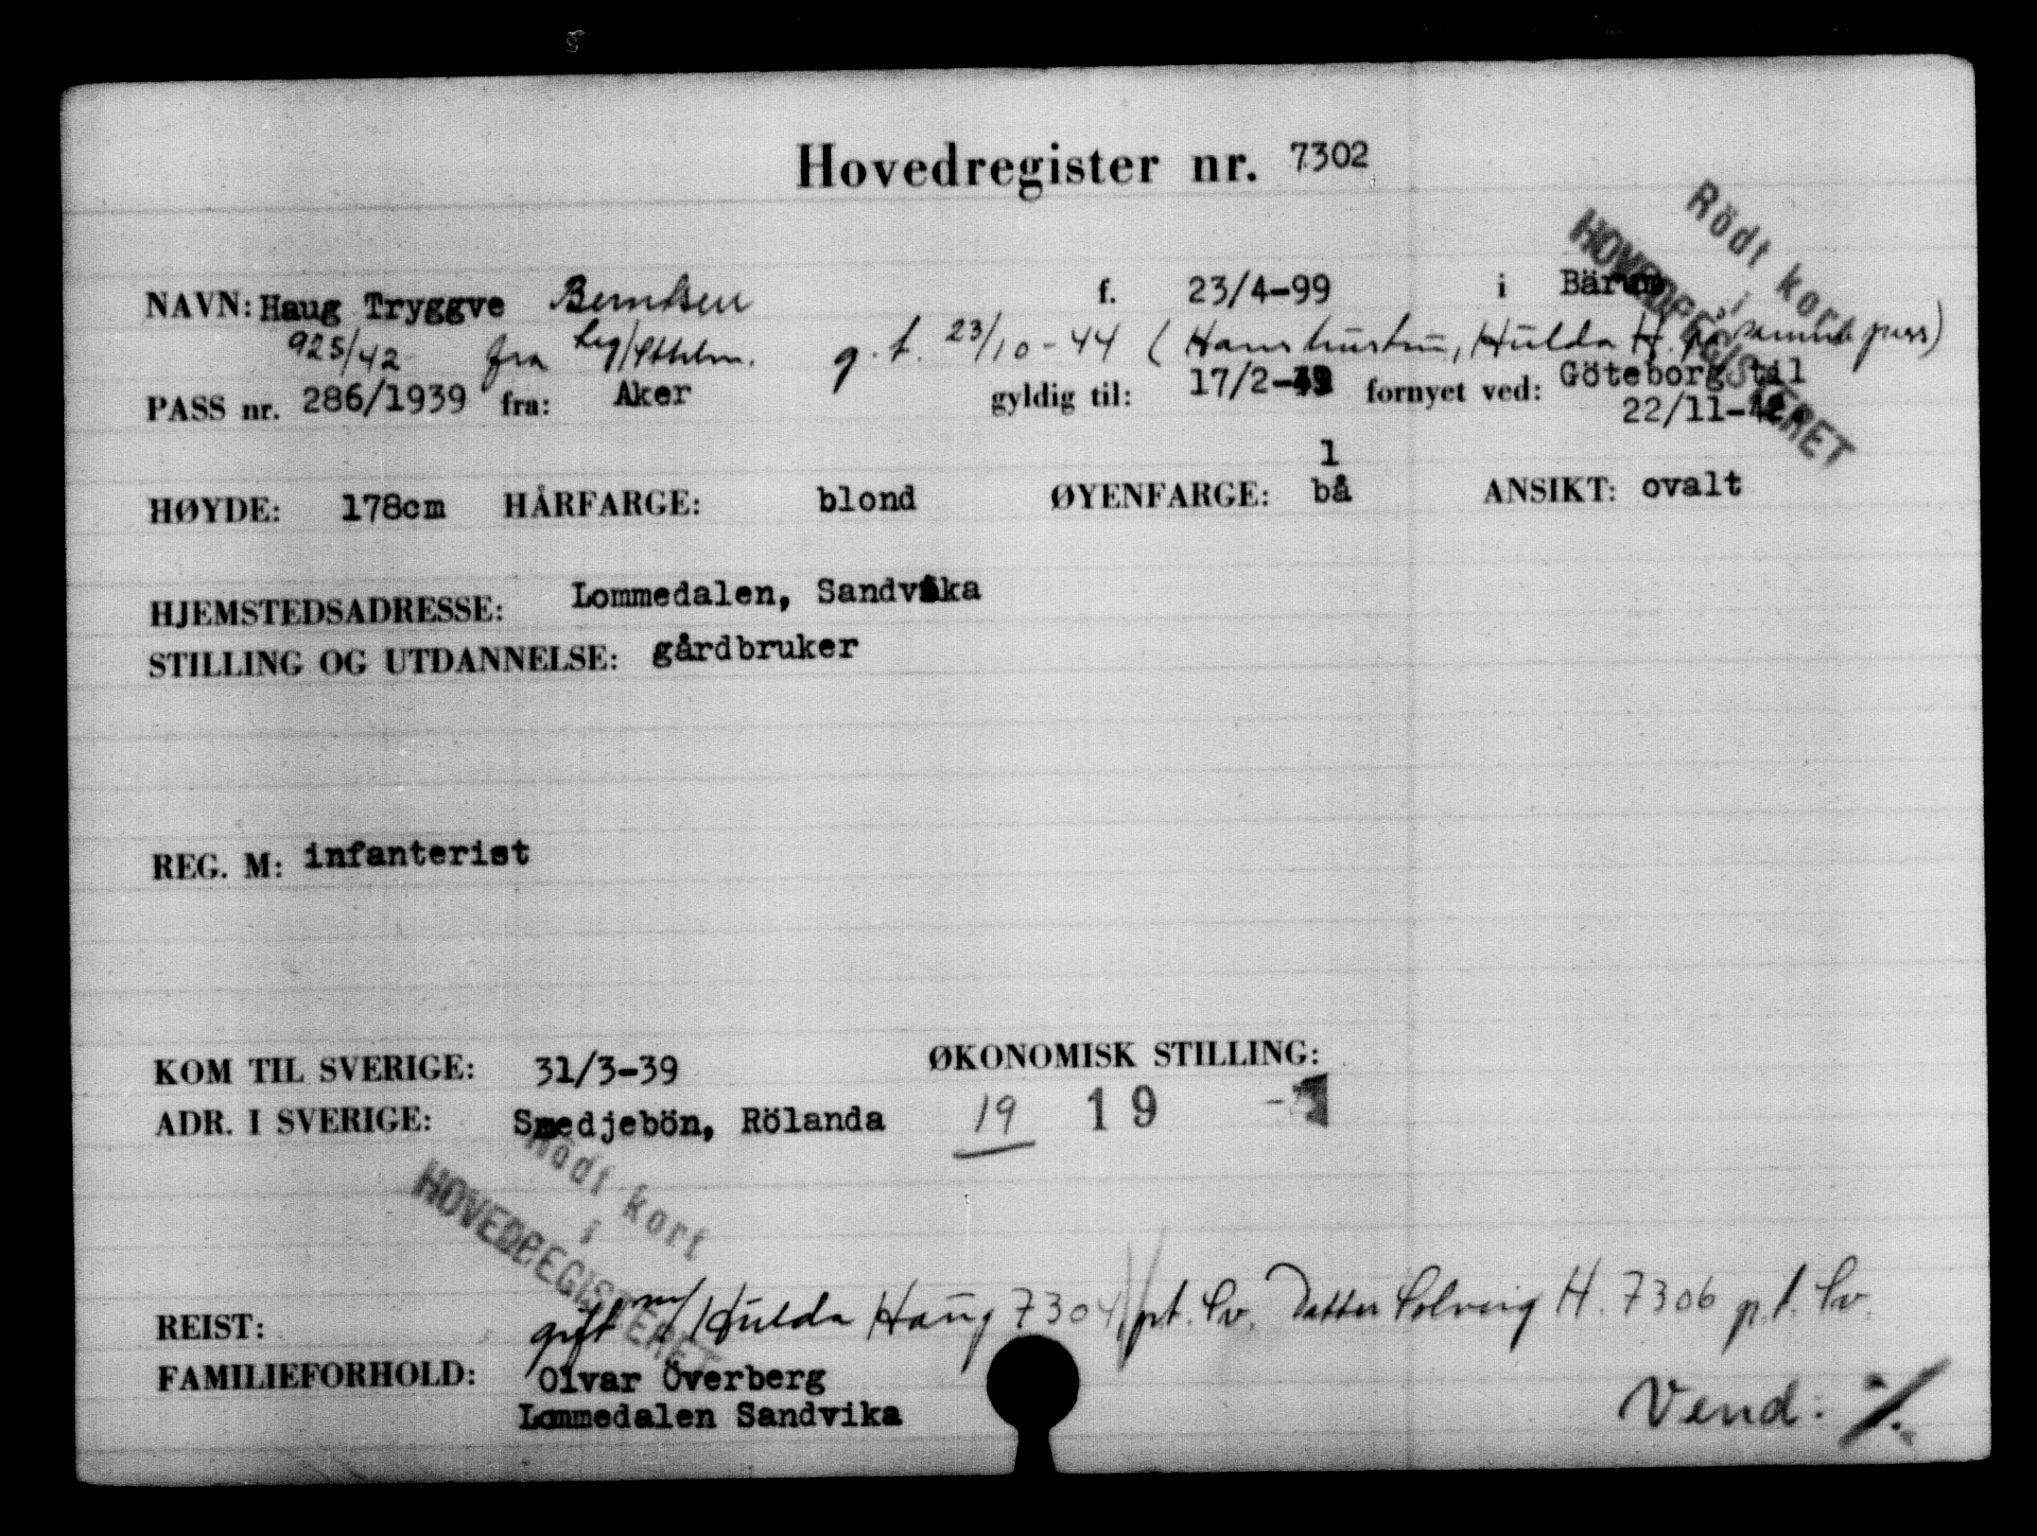 Hovedregister nr. 7302
Rödt kort
i
HOVEDREGISTERET
NAVN: Haug Tryggve Berntsen f. 23/4-99 i Bärum
925/42 fra Leg/Sthlm. g.t. 23/10-44 (Hans hustru, Hulda H. på samme pass)
PASS nr. 286/1939 fra: Aker gyldig til: 17/2- fornyet ved: Göteborg til
22/11-42
l
HØYDE: 178cm HÅRFARGE: blond ØYENFARGE: bå ANSIKT: ovalt
HJEMSTEDSADRESSE: Lommedalen, Sandvika
STILLING OG UTDANNELSE: gårdbruker
REG. M: infanterist
KOM TIL SVERIGE: 31/3-39 ØKONOMISK STILLING:
ADR. I SVERIGE: Smedjebön, Rölanda 19 19
Rödt kort
i
HOVEDREGISTERET
REIST: gift m/ Hulda Haug 7304, pt. Sv. Datter Solveig H. 7306 p.t. Sv.
FAMILIEFORHOLD: Olvar Överberg
Lommedalen Sandvika
Vend: ·/.